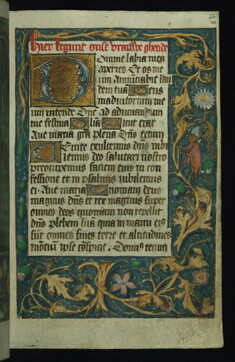 Hier begint onse vrauwe ghetide
Domine labia mea
aperies Et os me
um annuntiabit lau
dem tuā Deus
in adiutorium me
um intende Dne ad adiuuandum
me festina Gloria sicut erat
Aue maria gra plena Dns tecum
Uenite exultemus dno iubi
lemus deo salutari nostro
preoccupemus faciem eius in con
fessione et in psalmis iubilemus
ei Aue maria Quoniam deus
magnus dns et rex magnus super
omnes deos quoniam non repellit
dns plebem suā quia in manu eius
sūt omnes fines terre et altitudines
mōtiū ipse cōspicit Dominus tecum